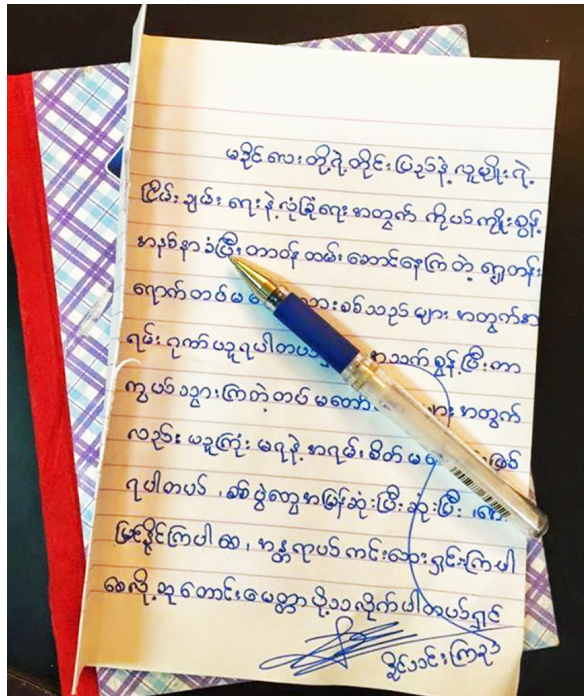 မခိုင်လေးတို့ရဲ့တိုင်းပြည်နဲ့လူမျိုးရဲ့
ငြိမ်းချမ်းရေးနဲ့လုံခြုံရေးအတွက် ကိုယ်ကျိုးစွန့်
အနစ်နာခံပြီးတာဝန်ထမ်းဆောင်နေကြတဲ့ ရှေ့တန်း
ရောက်တပ်မ သားစစ်သည်များ အတွက်အ
ရမ်းဂုဏ်ယူရပါတယ် အသက်စွန့်ပြီးတာ
ကွယ်သွားကြတဲ့တပ်မတော် များအတွက်
လည်းယူကြုံးမရနဲ့အရမ်းစိတ်မ ဖြစ်
ရပါတယ်၊စစ်ပွဲတွေအမြန်ဆုံးပြီးဆုံးပြီး၊
မြန်နိုင်ကြပါစေ၊အန္တရာယ်ကင်းဘေးရှင်းကြပါ
စေလို့ဆုတောင်းမေတ္တာပို့သလိုက်ပါတယ်ရှင်
ခိုင်သင်းကြည်